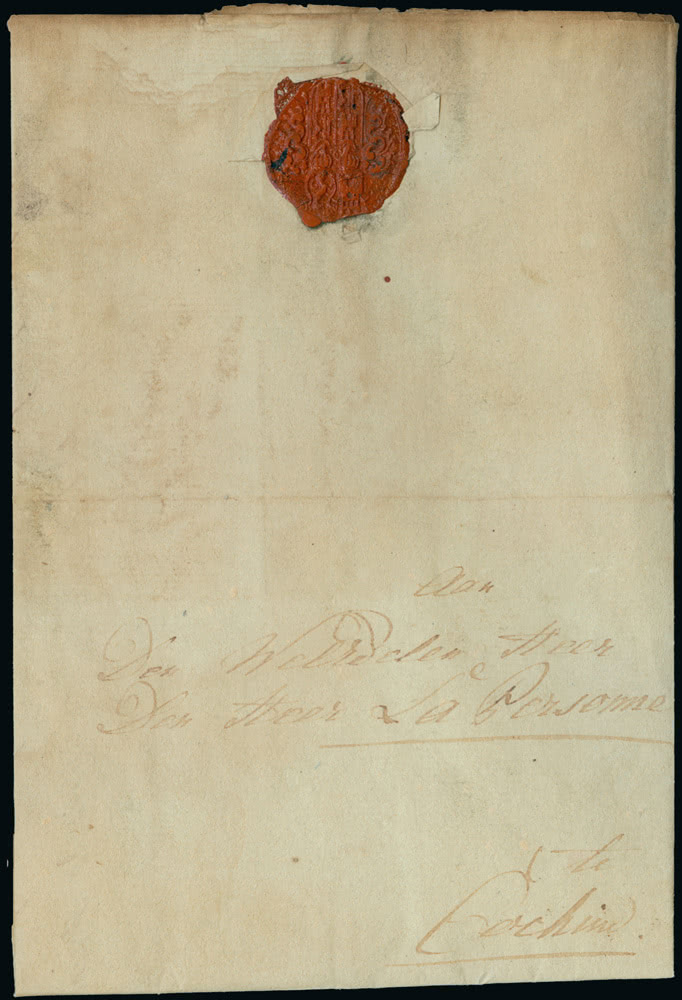 Aan
Den WelEdelen Heer
Den Heer La Personne
te
Cochim.